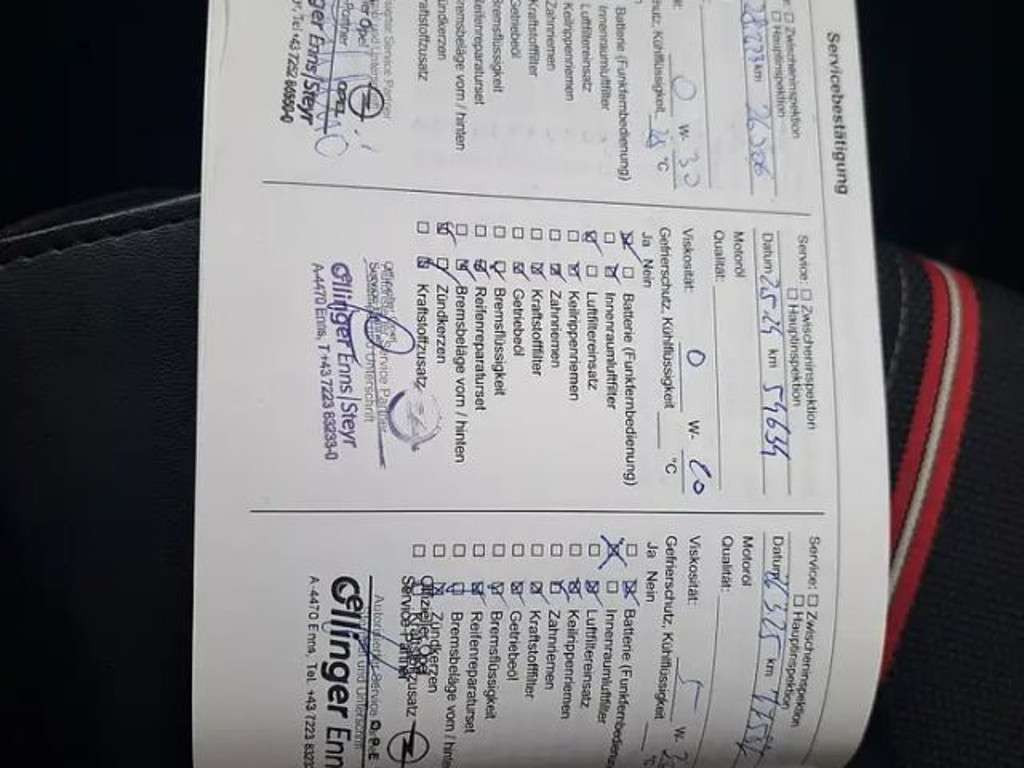 Servicebestätigung
Zwischeninspektion
Hauptinspektion
km
0 W- 30
°C
Schutz, Kühlflüssigkeit
Batterie (Funkfernbedienung)
Innenraumluftfilter
Luftfiltereinsatz
Keilrippenriemen
Zahnriemen
Kraftstofffilter
Getriebeöl
Bremsflüssigkeit
Reifenreparaturset
Bremsbeläge vorn / hinten
Zündkerzen
Kraftstoffzusatz
Opel
OPEL
Enns/Steyr
Tel +43 7252 80550-0
Service: Zwischeninspektion
Hauptinspektion
Datum km 54634
Motoröl
Qualität:
Viskosität: 0 W- 20
Gefrierschutz, Kühlflüssigkeit °C
Ja Nein
Batterie (Funkfernbedienung)
Innenraumluftfilter
Luftfiltereinsatz
Keilrippenriemen
Zahnriemen
Kraftstofffilter
Getriebeöl
Bremsflüssigkeit
Reifenreparaturset
Bremsbeläge vorn / hinten
Zündkerzen
Kraftstoffzusatz
Service Partner
Unterschrift
öllinger Enns/Steyr
A-4470 Enns, T +43 7223 83233-0
Service: Zwischeninspektion
Hauptinspektion
Datum km
Motoröl
Qualität:
Viskosität: 5 W-
Gefrierschutz, Kühlflüssigkeit
Ja Nein
Batterie (Funkfernbedienu
Innenraumluftfilter
Luftfiltereinsatz
Keilrippenriemen
Zahnriemen
Kraftstofffilter
Getriebeöl
Bremsflüssigkeit
Reifenreparaturset
Bremsbeläge vorn / hinte
Zündkerzen
Kraftstoffzusatz
Offizieller Opel
Service Partner
und Unterschrift
öllinger Enn
A-4470 Enns, Tel. +43 7223 832